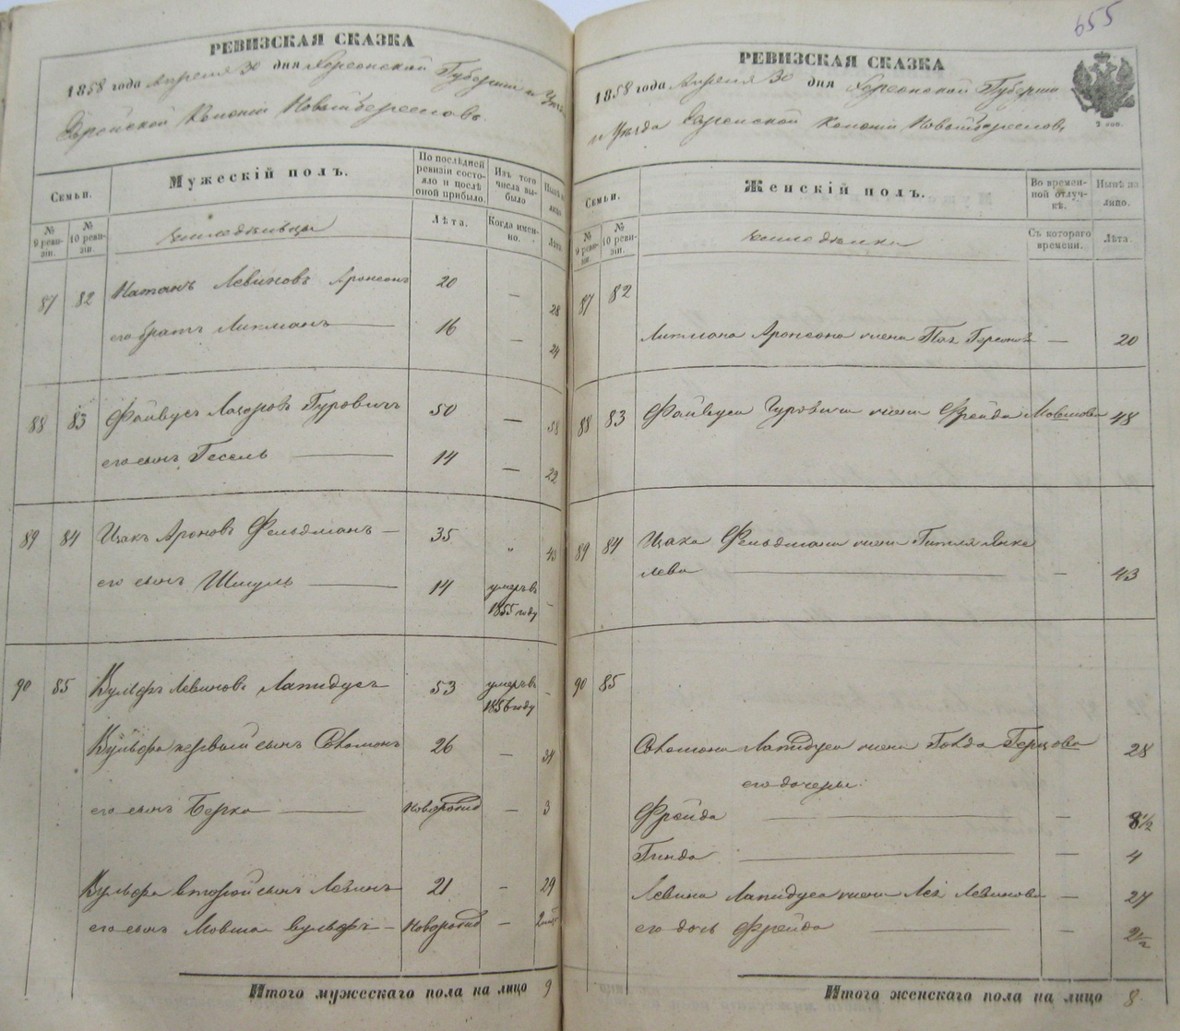 РЕВИЗСКАЯ СКАЗКА
1858 года Апреля 30 дня Херсонской Губернии и Уѣзда
Еврейской Колоніи Новый Бериславъ
Семьи.
Мужескій полъ.
По послѣдней ревизіи состояло и послѣ оной прибыло.
Изъ того числа выбыло
Нынѣ на лицо.
№ 9 ревизіи.
№ 10 ревизіи.
Земледѣльцы
Лѣта.
Когда именно.
Лѣта.
87 82 Натанъ Левиновъ Аронсонъ 20 — 28
его братъ Ликманъ — 16 — 24
88 83 Файвусъ Лазаровъ Гуровичъ 50 — 58
его сынъ Гесель — 14 — 22
89 84 Ицакъ Ароновъ Фельдманъ — 35 „ 43
его сынъ Шмуль — 14 умеръ въ 1855 году —
90 85 Вульфъ Левиновъ Лапидусъ 53 умеръ въ 1856 году —
Вульфа первый сынъ Соломонъ 26 — 34
его сынъ Берко — новорожд — 3
Вульфа второй сынъ Левинъ 21 — 29
его сынъ Мовша Вульфъ — новорожд — 2
Итого мужескаго пола на лицо 9
655
РЕВИЗСКАЯ СКАЗКА
1858 года Апреля 30 дня Херсонской Губерніи
и Уѣзда Еврейской Колоніи Новый Бериславъ
Семьи.
Женскій полъ.
Во временной отлучкѣ.
Нынѣ на лицо.
№ 9 ревизіи.
№ 10 ревизіи.
Земледѣлки
Съ котораго времени.
Лѣта.
87 82
Ликмана Аронсона жена — 20
88 83 Файвуса Гуровича жена Фрейда Мовшова 48
89 84 Ицака Фельдмана жена Гитля Янкелева — — 43
90 85
Соломона Лапидуса жена Герцова 28
его дочеры
Фрейда — — 8 1/2
Гинда — — 4
Левина Лапидуса жена Лея Левинова — 27
его дочь Фрейда — — 2 1/2
Итого женскаго пола на лицо 8